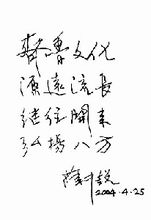 魯文化
源遠流長
継往開来
弘揚八方
2004.4.25